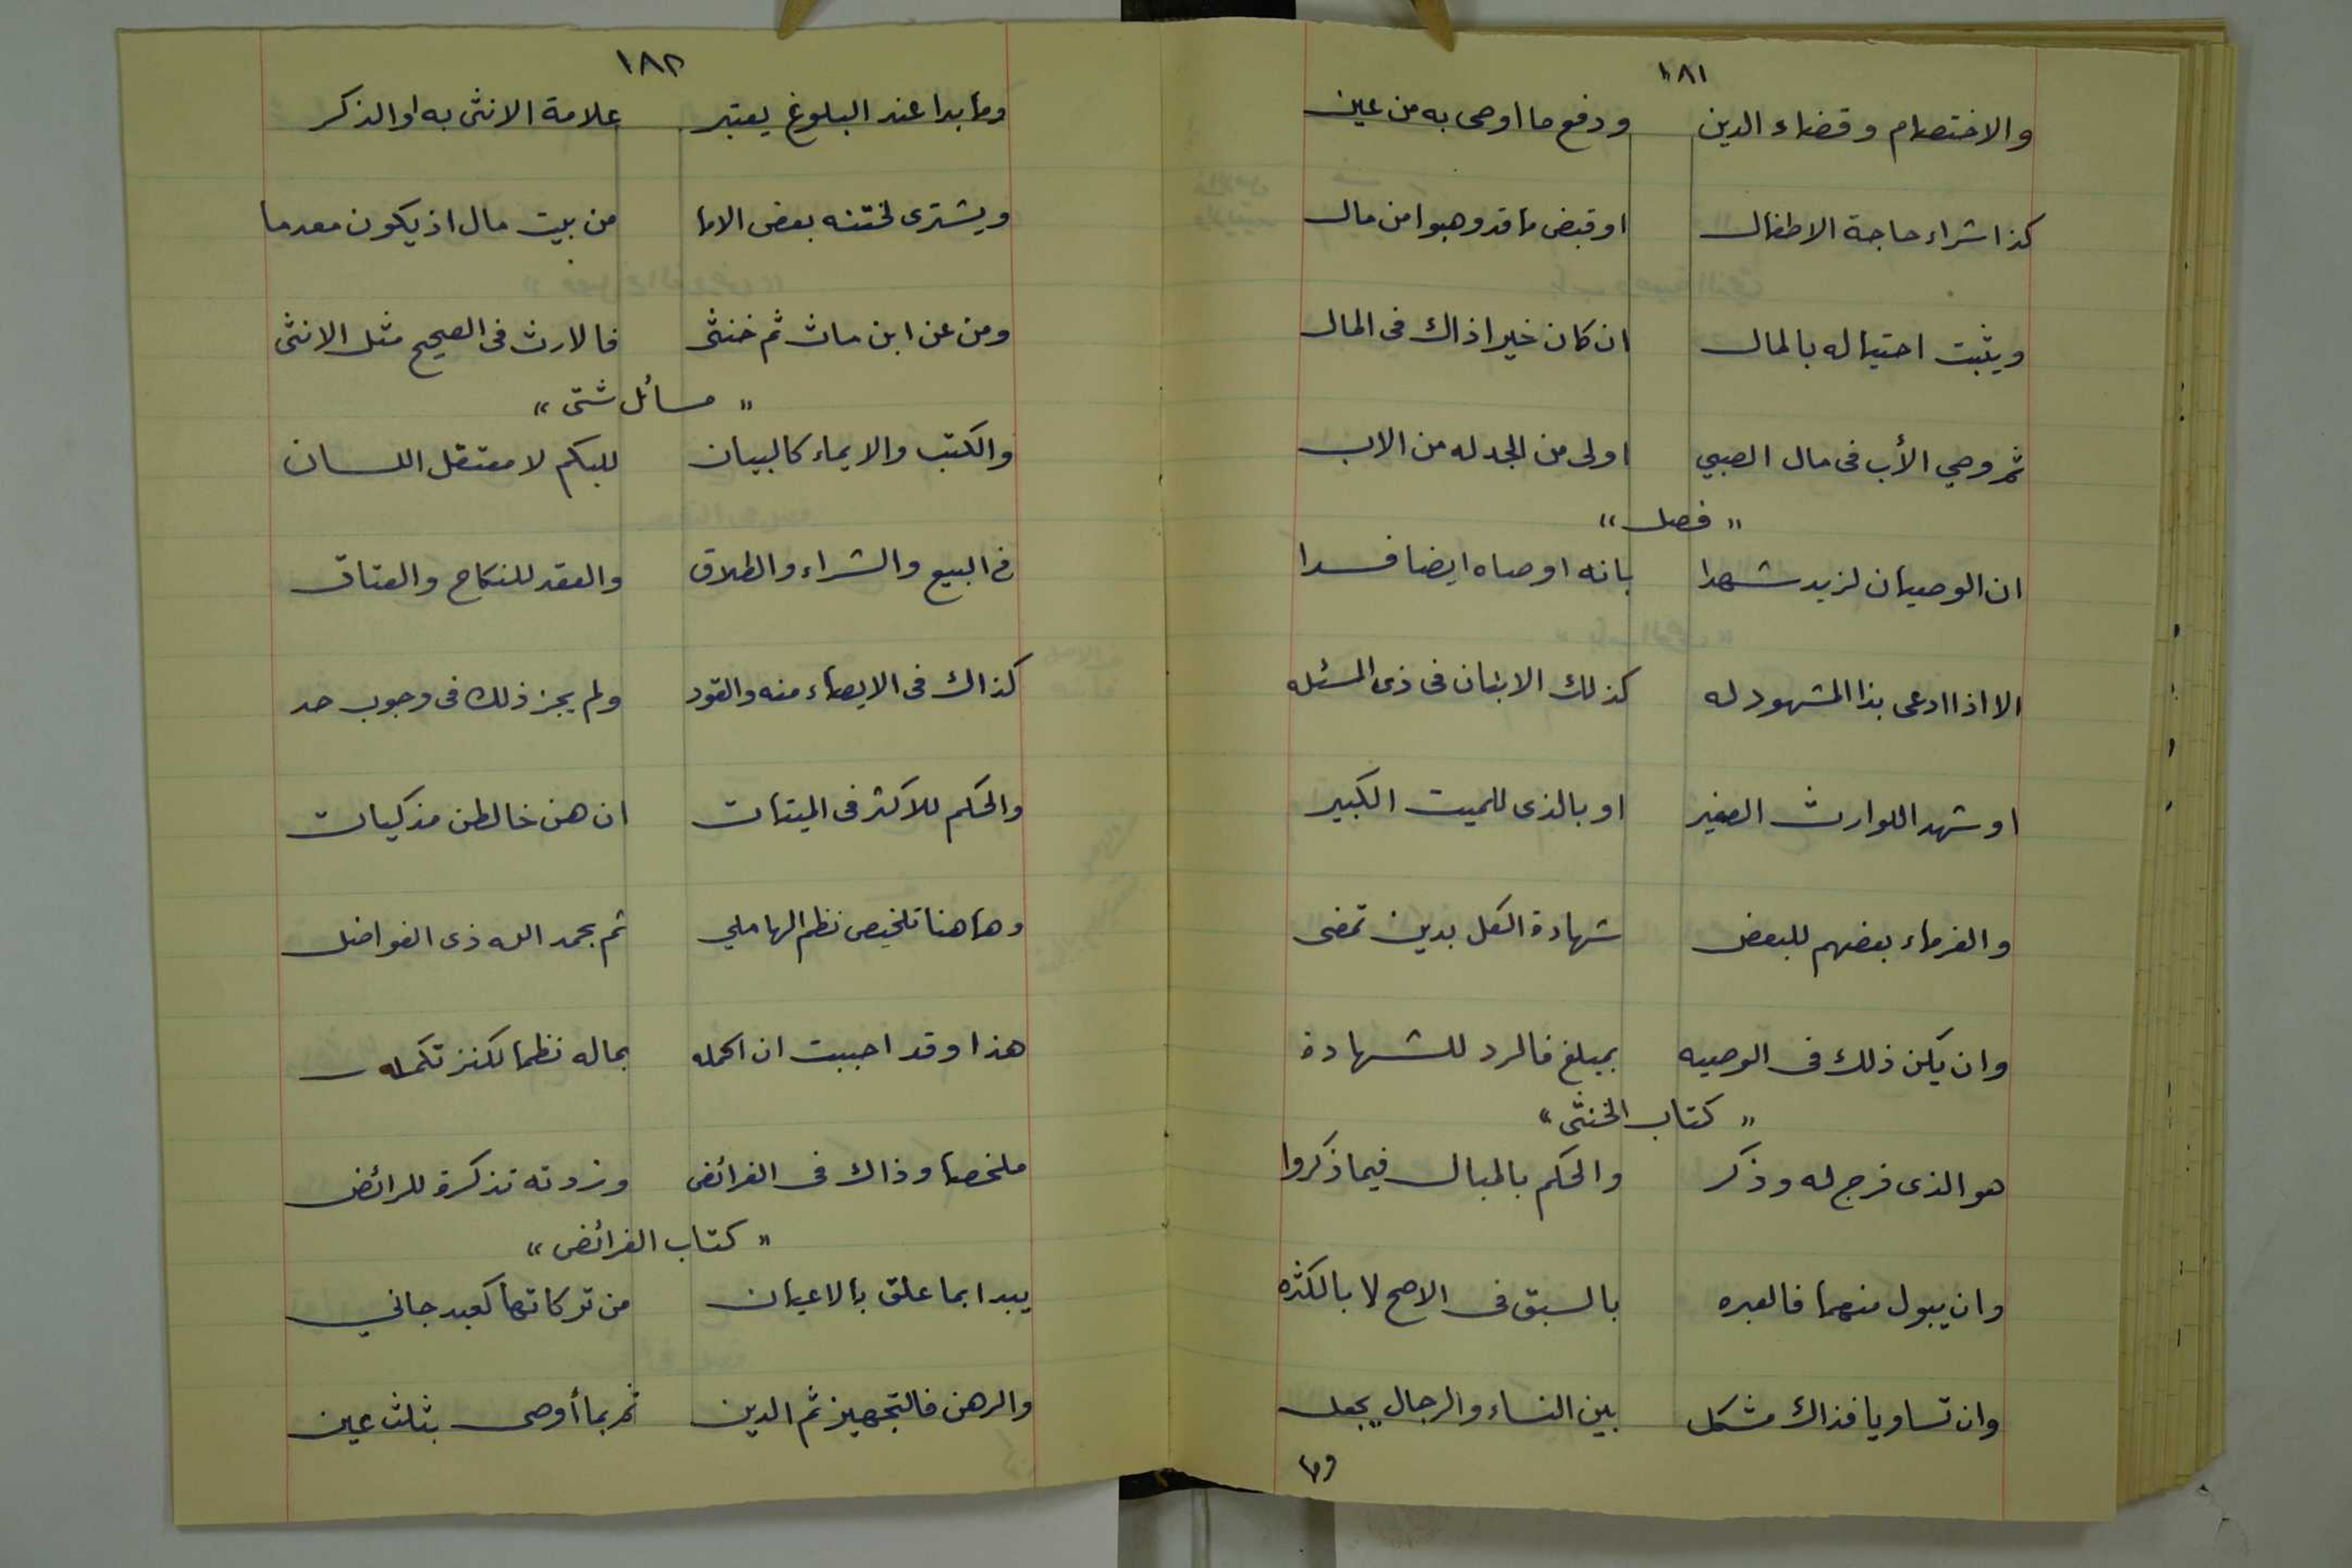 ١٨١
والاختصام وقضاء الدين ودفع ما اوصى به من عين
كذا شراء حاجة الاطفال او قبض ما قد وهبوا من مال
ويثبت احتياله بالمال ان كان خيرا ذاك فى المال
ثم وصي الأب فى مال الصبي اولى من الجد له من الاب
" فصل "
ان الوصيان لزيد شهدا بانه اوصاه ايضا فسدا
الا اذا ادعى بذا المشهود له كذلك الابنان فى ذى المسئله
او شهدا للوارث الصغير او بالذى للميت الكبير
والغرماء بعضهم للبعض شهادة الكل بدين تمضى
وان يكن ذلك فى الوصيه بمبلغ فالرد للشهادة
" كتاب الخنثى "
هو الذى فرج له وذكر والحكم بالمبال فيما ذكروا
وان يبول منهما فالعبره بالسبق فى الاصح لا بالكثره
وان تساويا فذاك مشكل بين النساء والرجال يجعل
وما
١٨٢
وما بدا عند البلوغ يعتبر علامة الانثى به او الذكر
ويشترى لختنه بعض الاما من بيت مال اذ يكون معدما
ومن عن ابن مات ثم خنثى فالارث فى الصحيح مثل الانثى
" مسائل شتى "
والكتب والايماء كالبيان للبكم لا معتقل اللسان
فى البيع والشراء والطلاق والعقد للنكاح والعتاق
كذاك فى الايصاء منه والقود ولم يجز ذلك فى وجوب حد
والحكم للاكثر فى الميتات ان هن خالطن مذكيات
وهاهنا تلخيص نظم الهاملي تم بحمد الله ذى الفواضل
هذا وقد احببت ان اكمله بما له نظما لكنز تكمله
ملخصا وذاك فى الفرائض وزدته تذكرة للرائض
" كتاب الفرائض "
يبدا بما علق بالاعيان من تركاتها كعبد جاني
والرهن فالتجهيز ثم الدين ثم بما أوصى بثلث عين